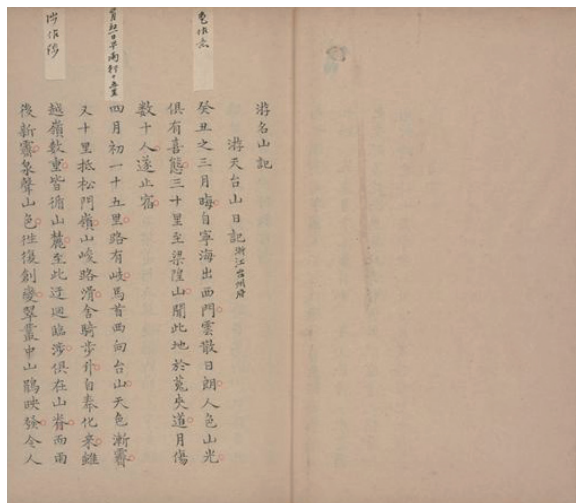 色作意
初一日早雨行十五里
涉作陟
游名山記
游天台山日記浙江台州府
癸丑之三月晦自寧海出西門雲散日朗人色山光
俱有喜態三十里至梁隍山聞此地於菟夾道月傷
數十人遂止宿
四月初一十五里路有岐馬首西向台山天色漸霽
又十里抵松門嶺山峻路滑舍騎步引自奉化来雖
越嶺數重皆循山麓至此迂迴臨涉俱在山脊而雨
後新霽泉聲山色徃復創變翠叢中山鵑映發令人